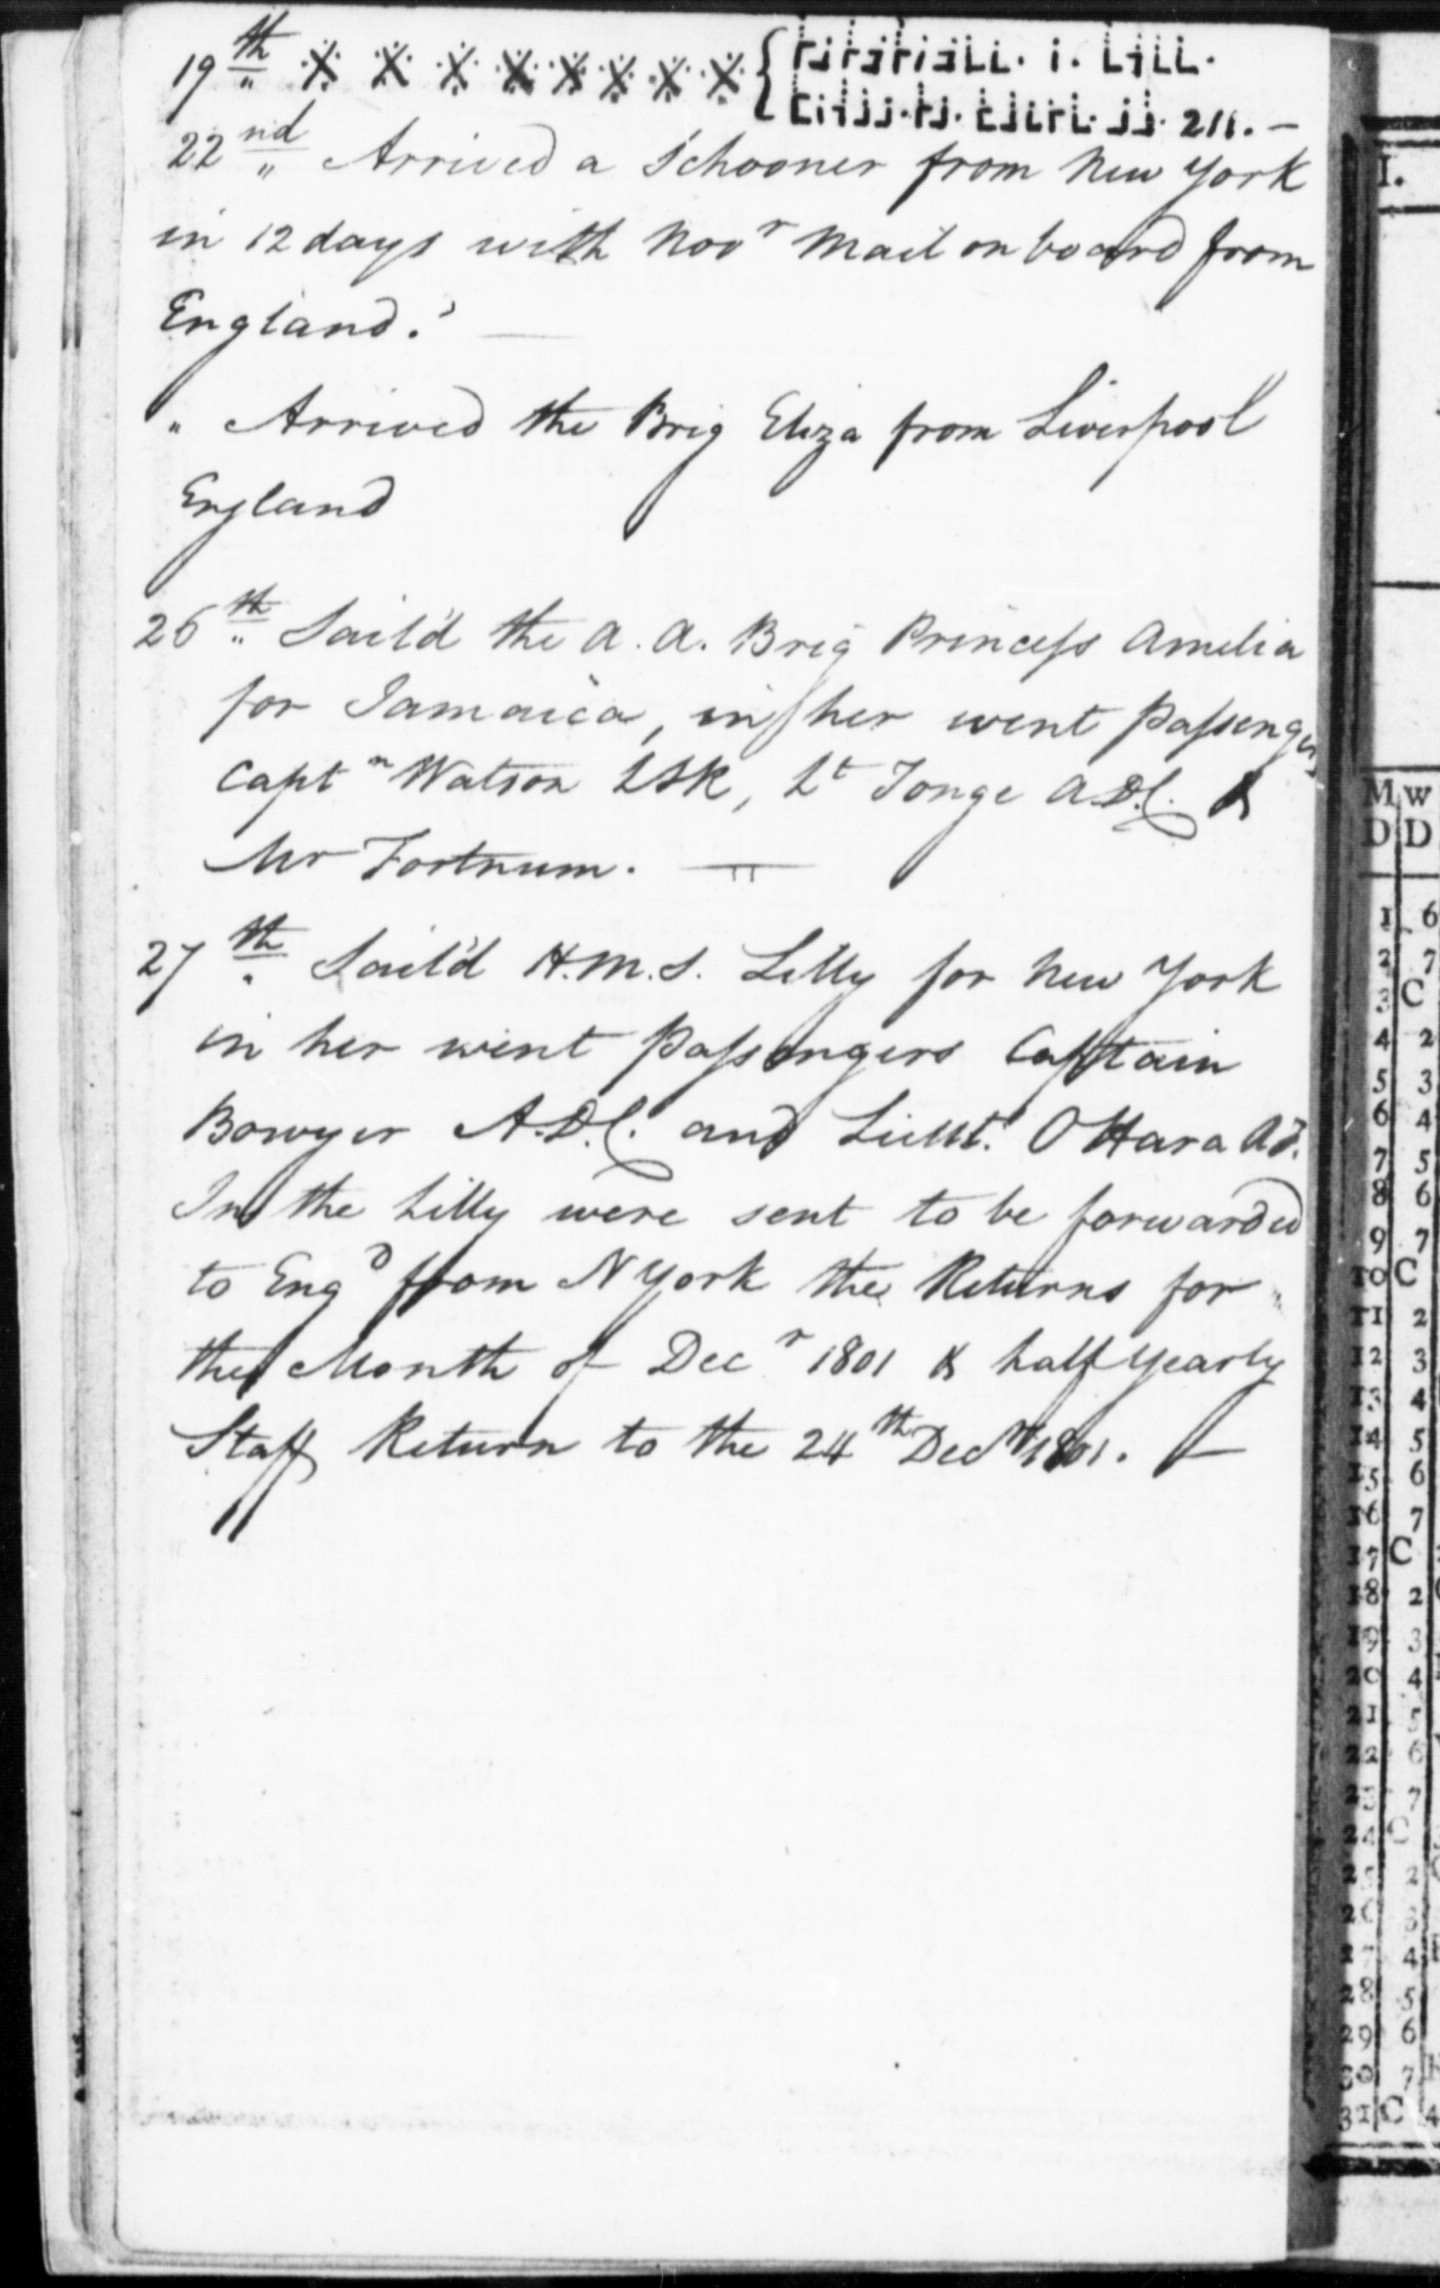 19th
211. —
22nd „ Arrived a Schooner from New York
in 12 days with Novr Mail on board from
England. —
„ Arrived the Brig Eliza from Liverpool
England
26th „ Sail'd the A. A. Brig Princess Amelia
for Jamaica, in her went Passengers
Captn Watson LSK, Lt Tonge A.D.C. &
Mr Fortnum. —
27th Sail'd H.M.S. Lilly for New York
in her went Passengers Captain
Bowyer A.D.C. and Lieut. O Hara
In the Lilly were sent to be forwarded
to Engd from N York the Returns for
the Month of Decr 1801 & half Yearly
Staff Return to the 24th Decr 1801. —
I.
M W
D D
1 6
2 7
3 C
4 2
5 3
6 4
7 5
8 6
9 7
10 C
11 2
12 3
13 4
14 5
15 6
16 7
17 C
18 2
19 3
20 4
21 5
22 6
23 7
24 C
25 2
26 3
27 4
28 5
29 6
30 7
31 C 4